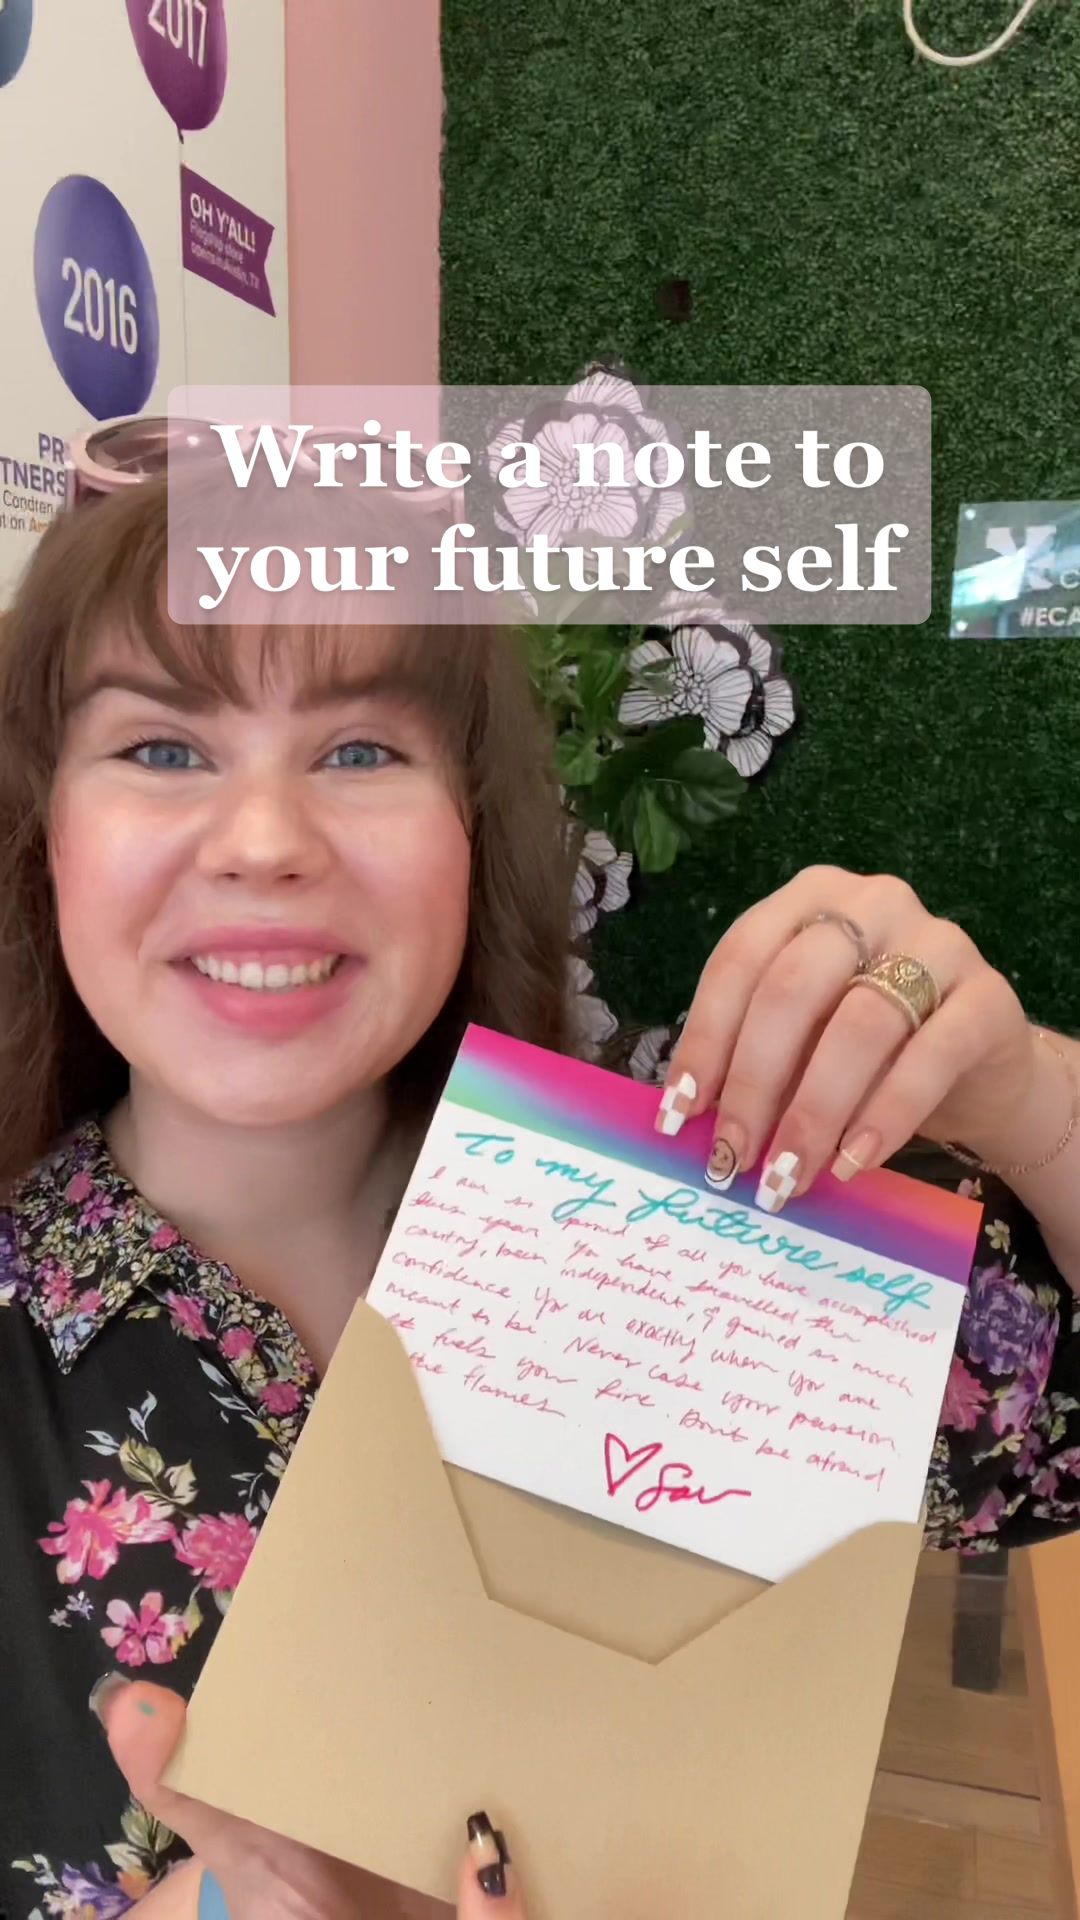 2017
OH Y'ALL!
Flagship store
opens in Austin, TX
2016
PR
TNERS
Condren
t on Am
Write a note to
your future self
#ECA
To my future self
I am so proud of all you have accomplished
this year. You have travelled the
country, been independent, & gained so much
confidence. You are exactly where you are
meant to be. Never lose your passion.
It fuels your fire. Don't be afraid
the flames.
♡ Sav